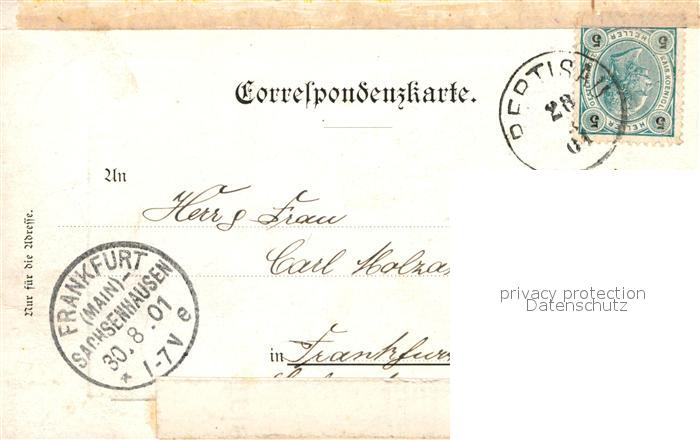 Correspondenzkarte.
PERTISAU
28
01
5 HELLER 5
KAIS. KOENIGL.
5 HELLER 5
An
Herr & Frau
Carl Molza
in Frankfur
Nur für die Adresse.
FRANKFURT
(MAIN)-
SACHSENHAUSEN
30.8.01
* 1-7V e
privacy protection
Datenschutz